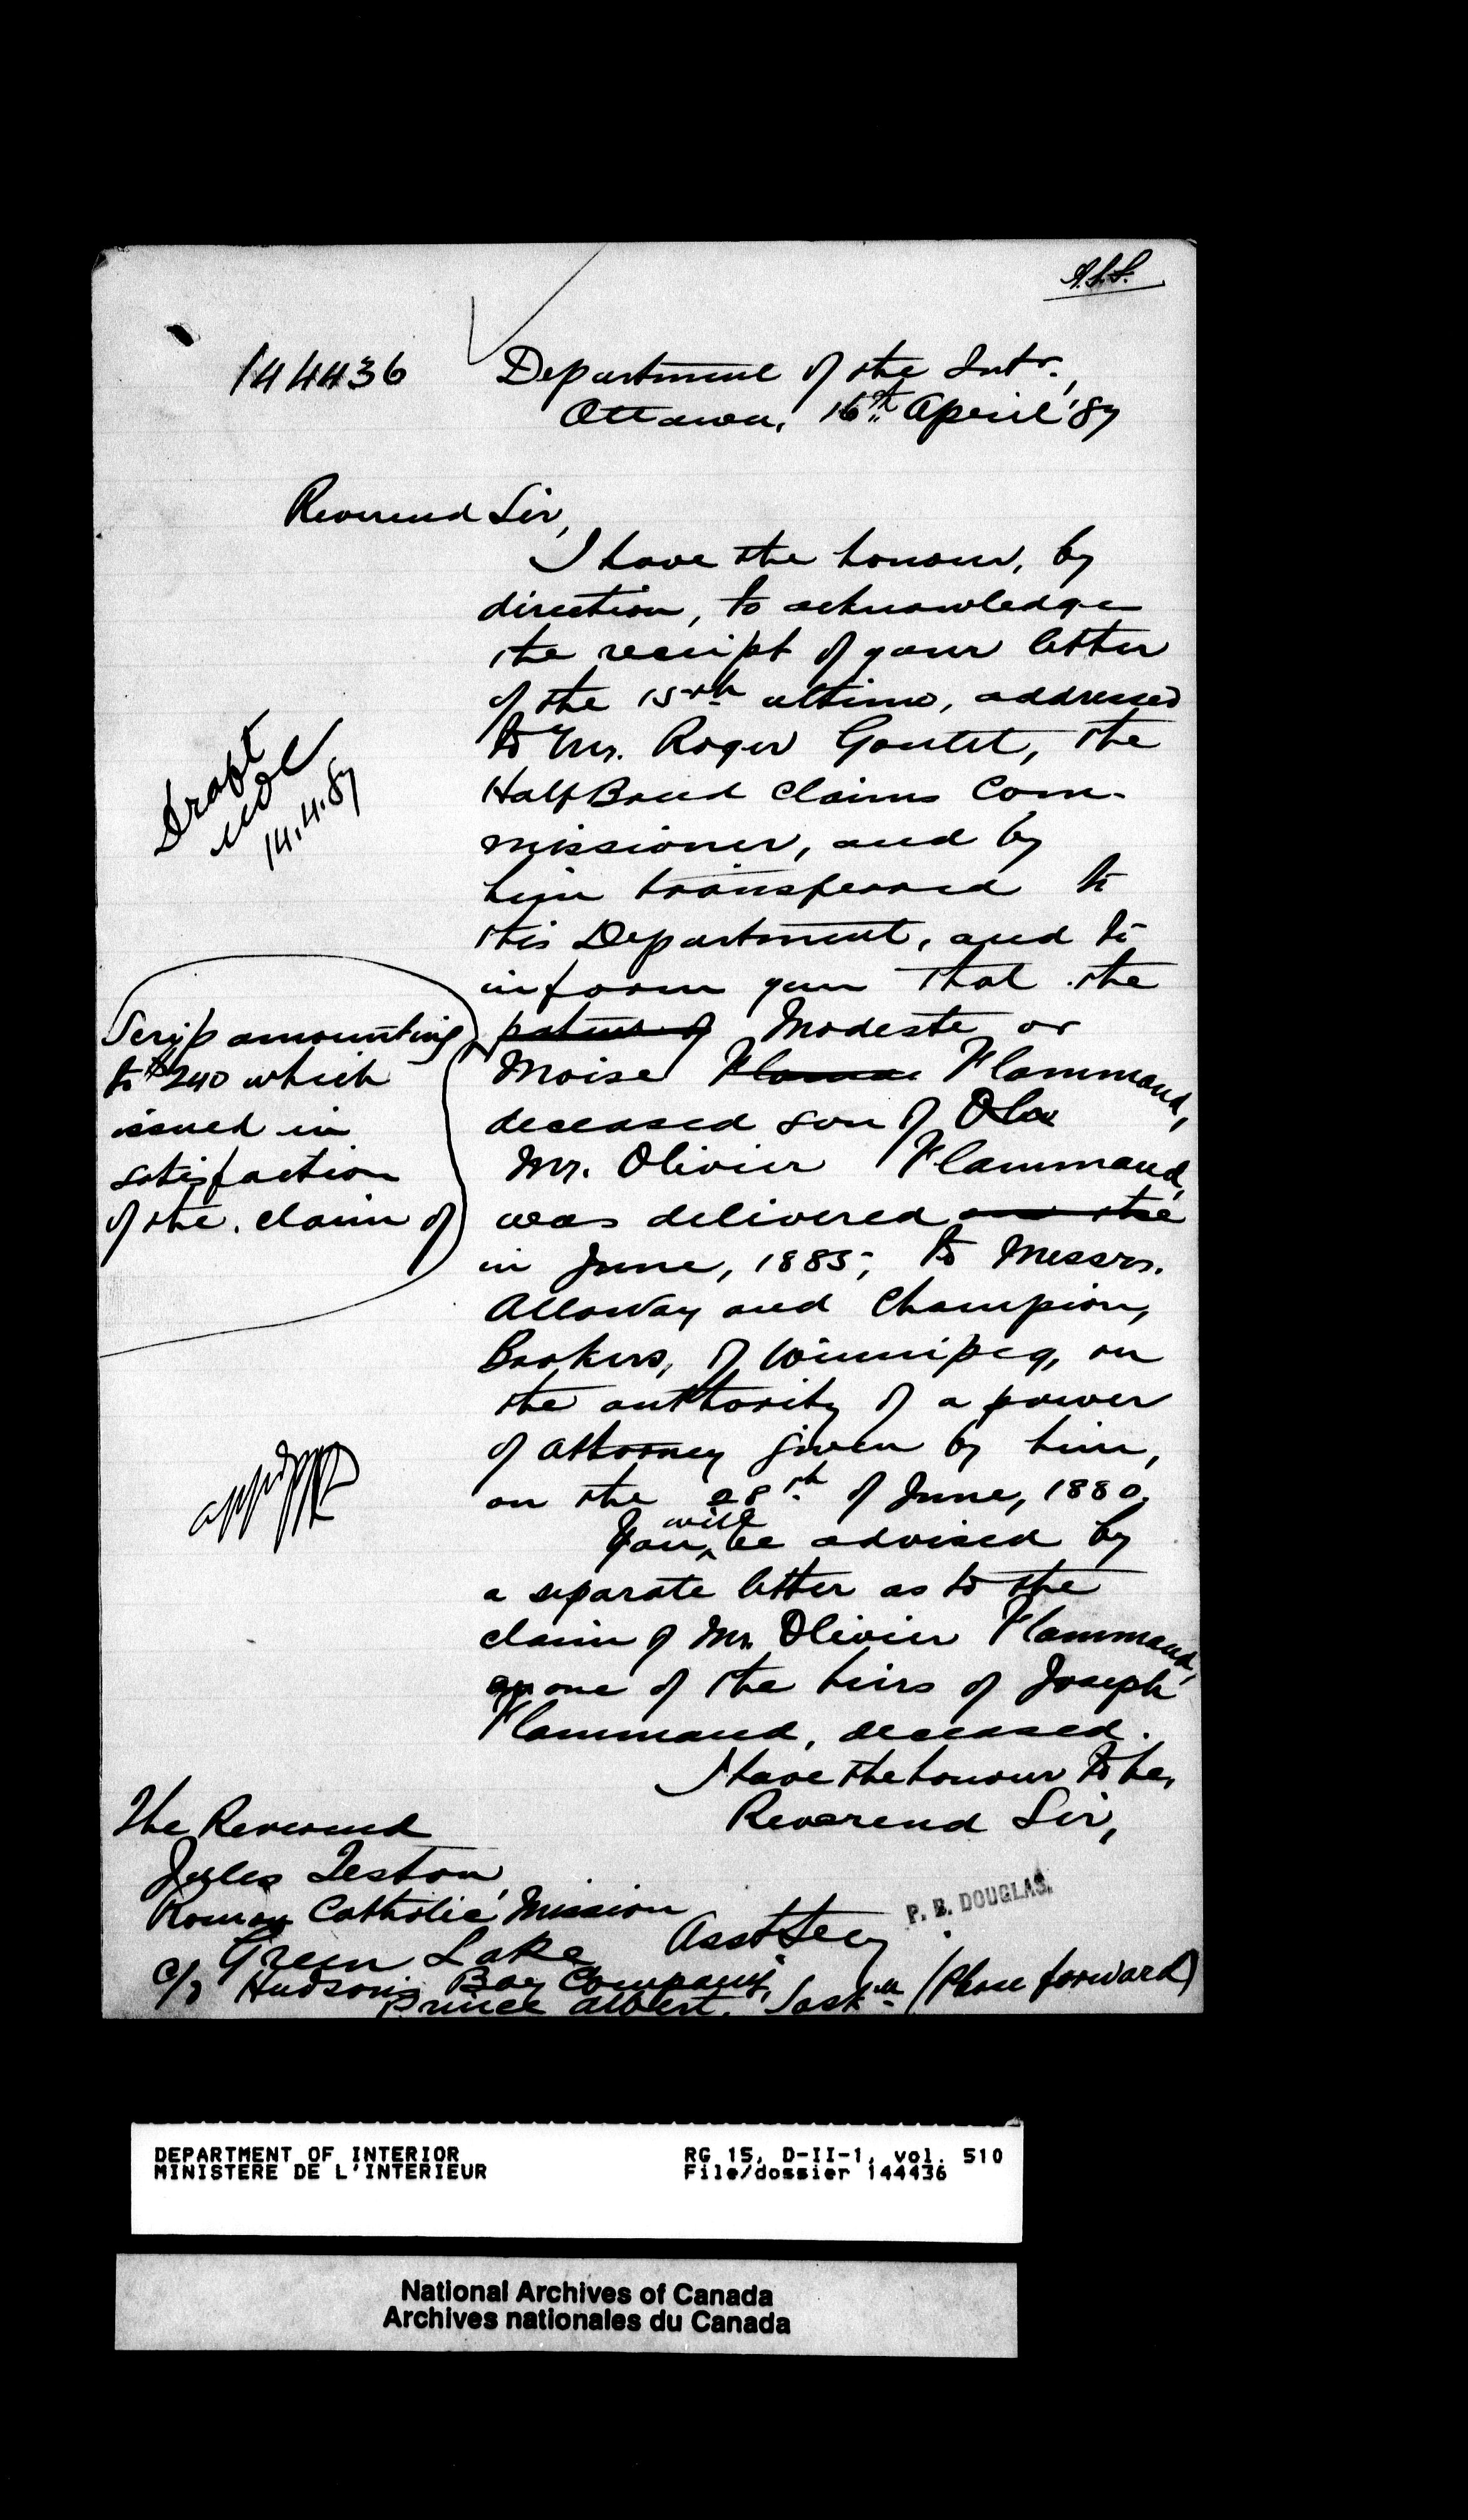 A.S.S.
144436
Department of the Intr.,
Ottawa, 16th April '87
Reverend Sir,
I have the honour, by
direction, to acknowledge
the receipt of your letter
of the 15th ultimo, addressed
to Mr. Roger Goulet, the
Half Breed Claims Com-
missioner, and by
him transferred to
this Department, and to
inform you that the
Draft
14.4.87
Scrip amounting
to $240 which
issued in
satisfaction
of the claim of
patent of Modeste or
Moise Flammand,
deceased son of
Mr. Olivier Flammand,
was delivered on the
in June, 1885, to Messrs.
Alloway and Champion,
Brokers, of Winnipeg, on
the authority of a power
of attorney given by him,
on the 28th of June, 1880.
You will be advised by
a separate letter as to the
claim of Mr. Olivier Flammand,
as one of the heirs of Joseph
Flammand, deceased.
I have the honour to be,
Reverend Sir,
P. B. DOUGLAS.
Asst Secy.
The Reverend
Jules Teston,
Roman Catholic Mission
Green Lake
c/o Hudson's Bay Company,
Prince Albert, Sask'n (Please forward)
DEPARTMENT OF INTERIOR
MINISTERE DE L'INTERIEUR
RG 15, D-II-1, vol. 510
File/dossier 144436
National Archives of Canada
Archives nationales du Canada